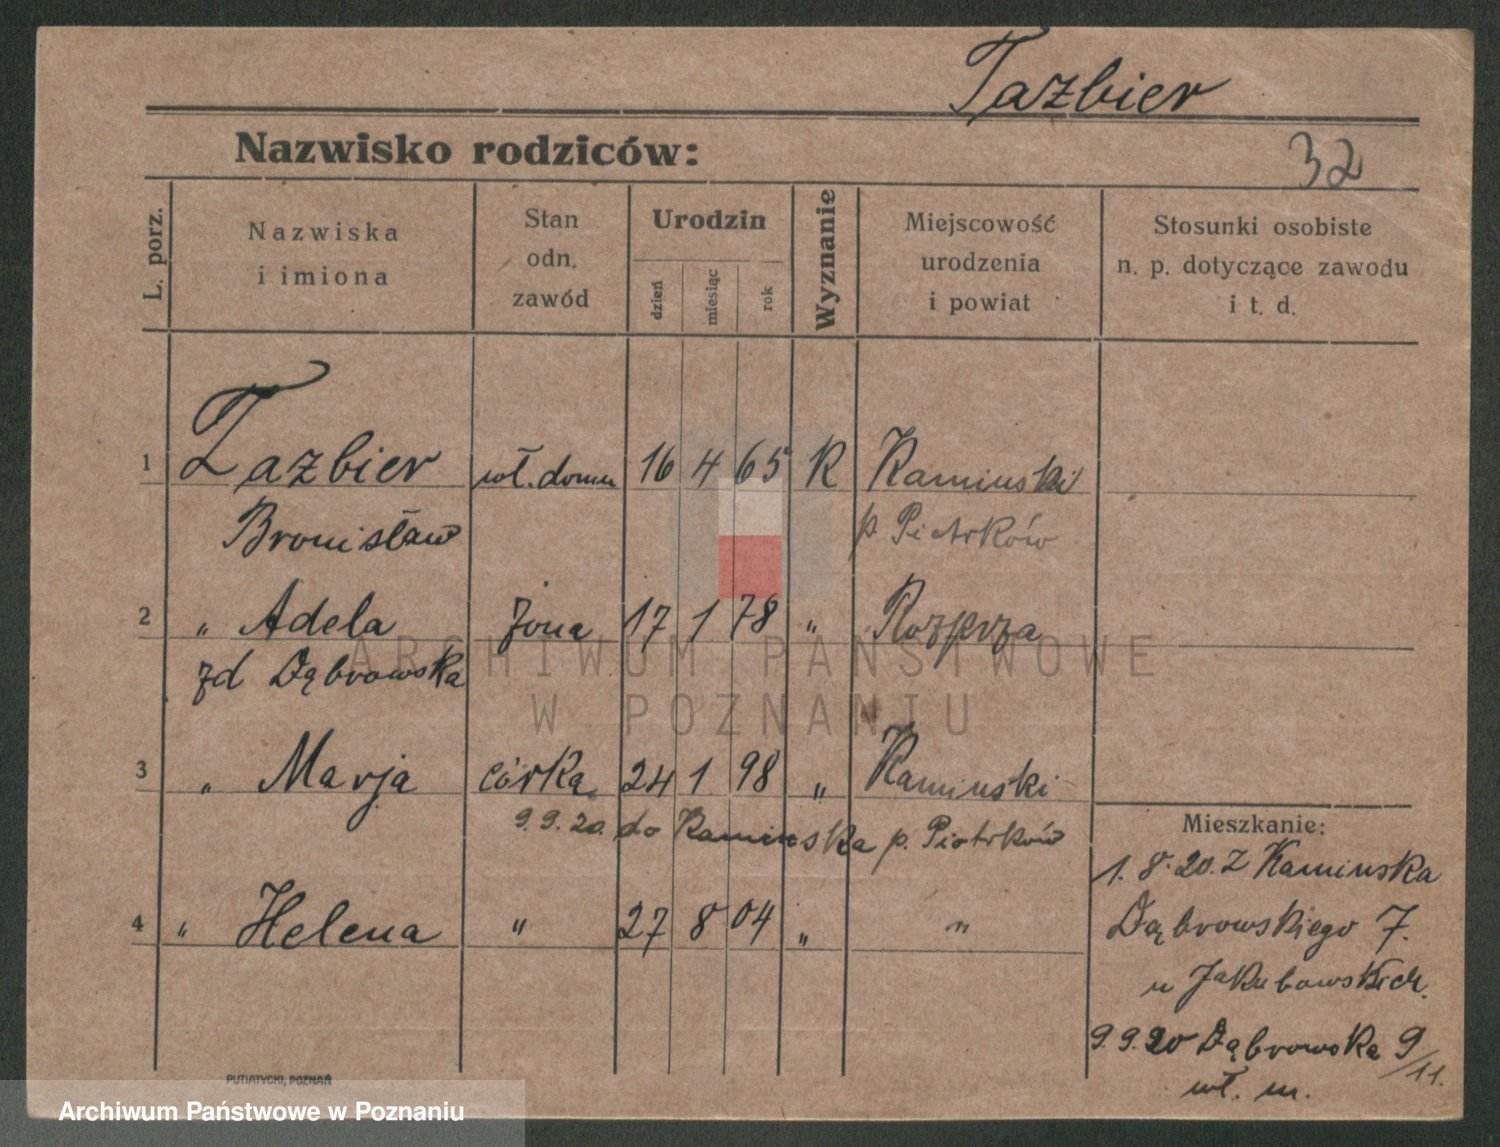 Tazbier
Nazwisko rodziców:
32
L. porz.
Nazwiska
i imiona
Stan
odn.
zawód
Urodzin
dzień
miesiąc
rok
Wyznanie
Miejscowość
urodzenia
i powiat
Stosunki osobiste
n. p. dotyczące zawodu
i t. d.
1 Tazbier wł. domu 16 4 65 R Kaminski
Bronisław p. Piotrków
2 „ Adela żona 17 1 78 „ Rozprza
zd Dąbrowska
3 „ Marja córka 24 1 98 „ Kaminski
9.9.20. do Kaminska p. Piotrków
4 „ Helena „ 27 8 04 „ „
Mieszkanie:
1.8.20. z Kaminska
Dąbrowskiego 7.
u Jakubowskich.
9.9.20 Dąbrowska 9/11.
wł. m.
PUTIATYCKI, POZNAŃ
ARCHIWUM PAŃSTWOWE
W POZNANIU
Archiwum Państwowe w Poznaniu